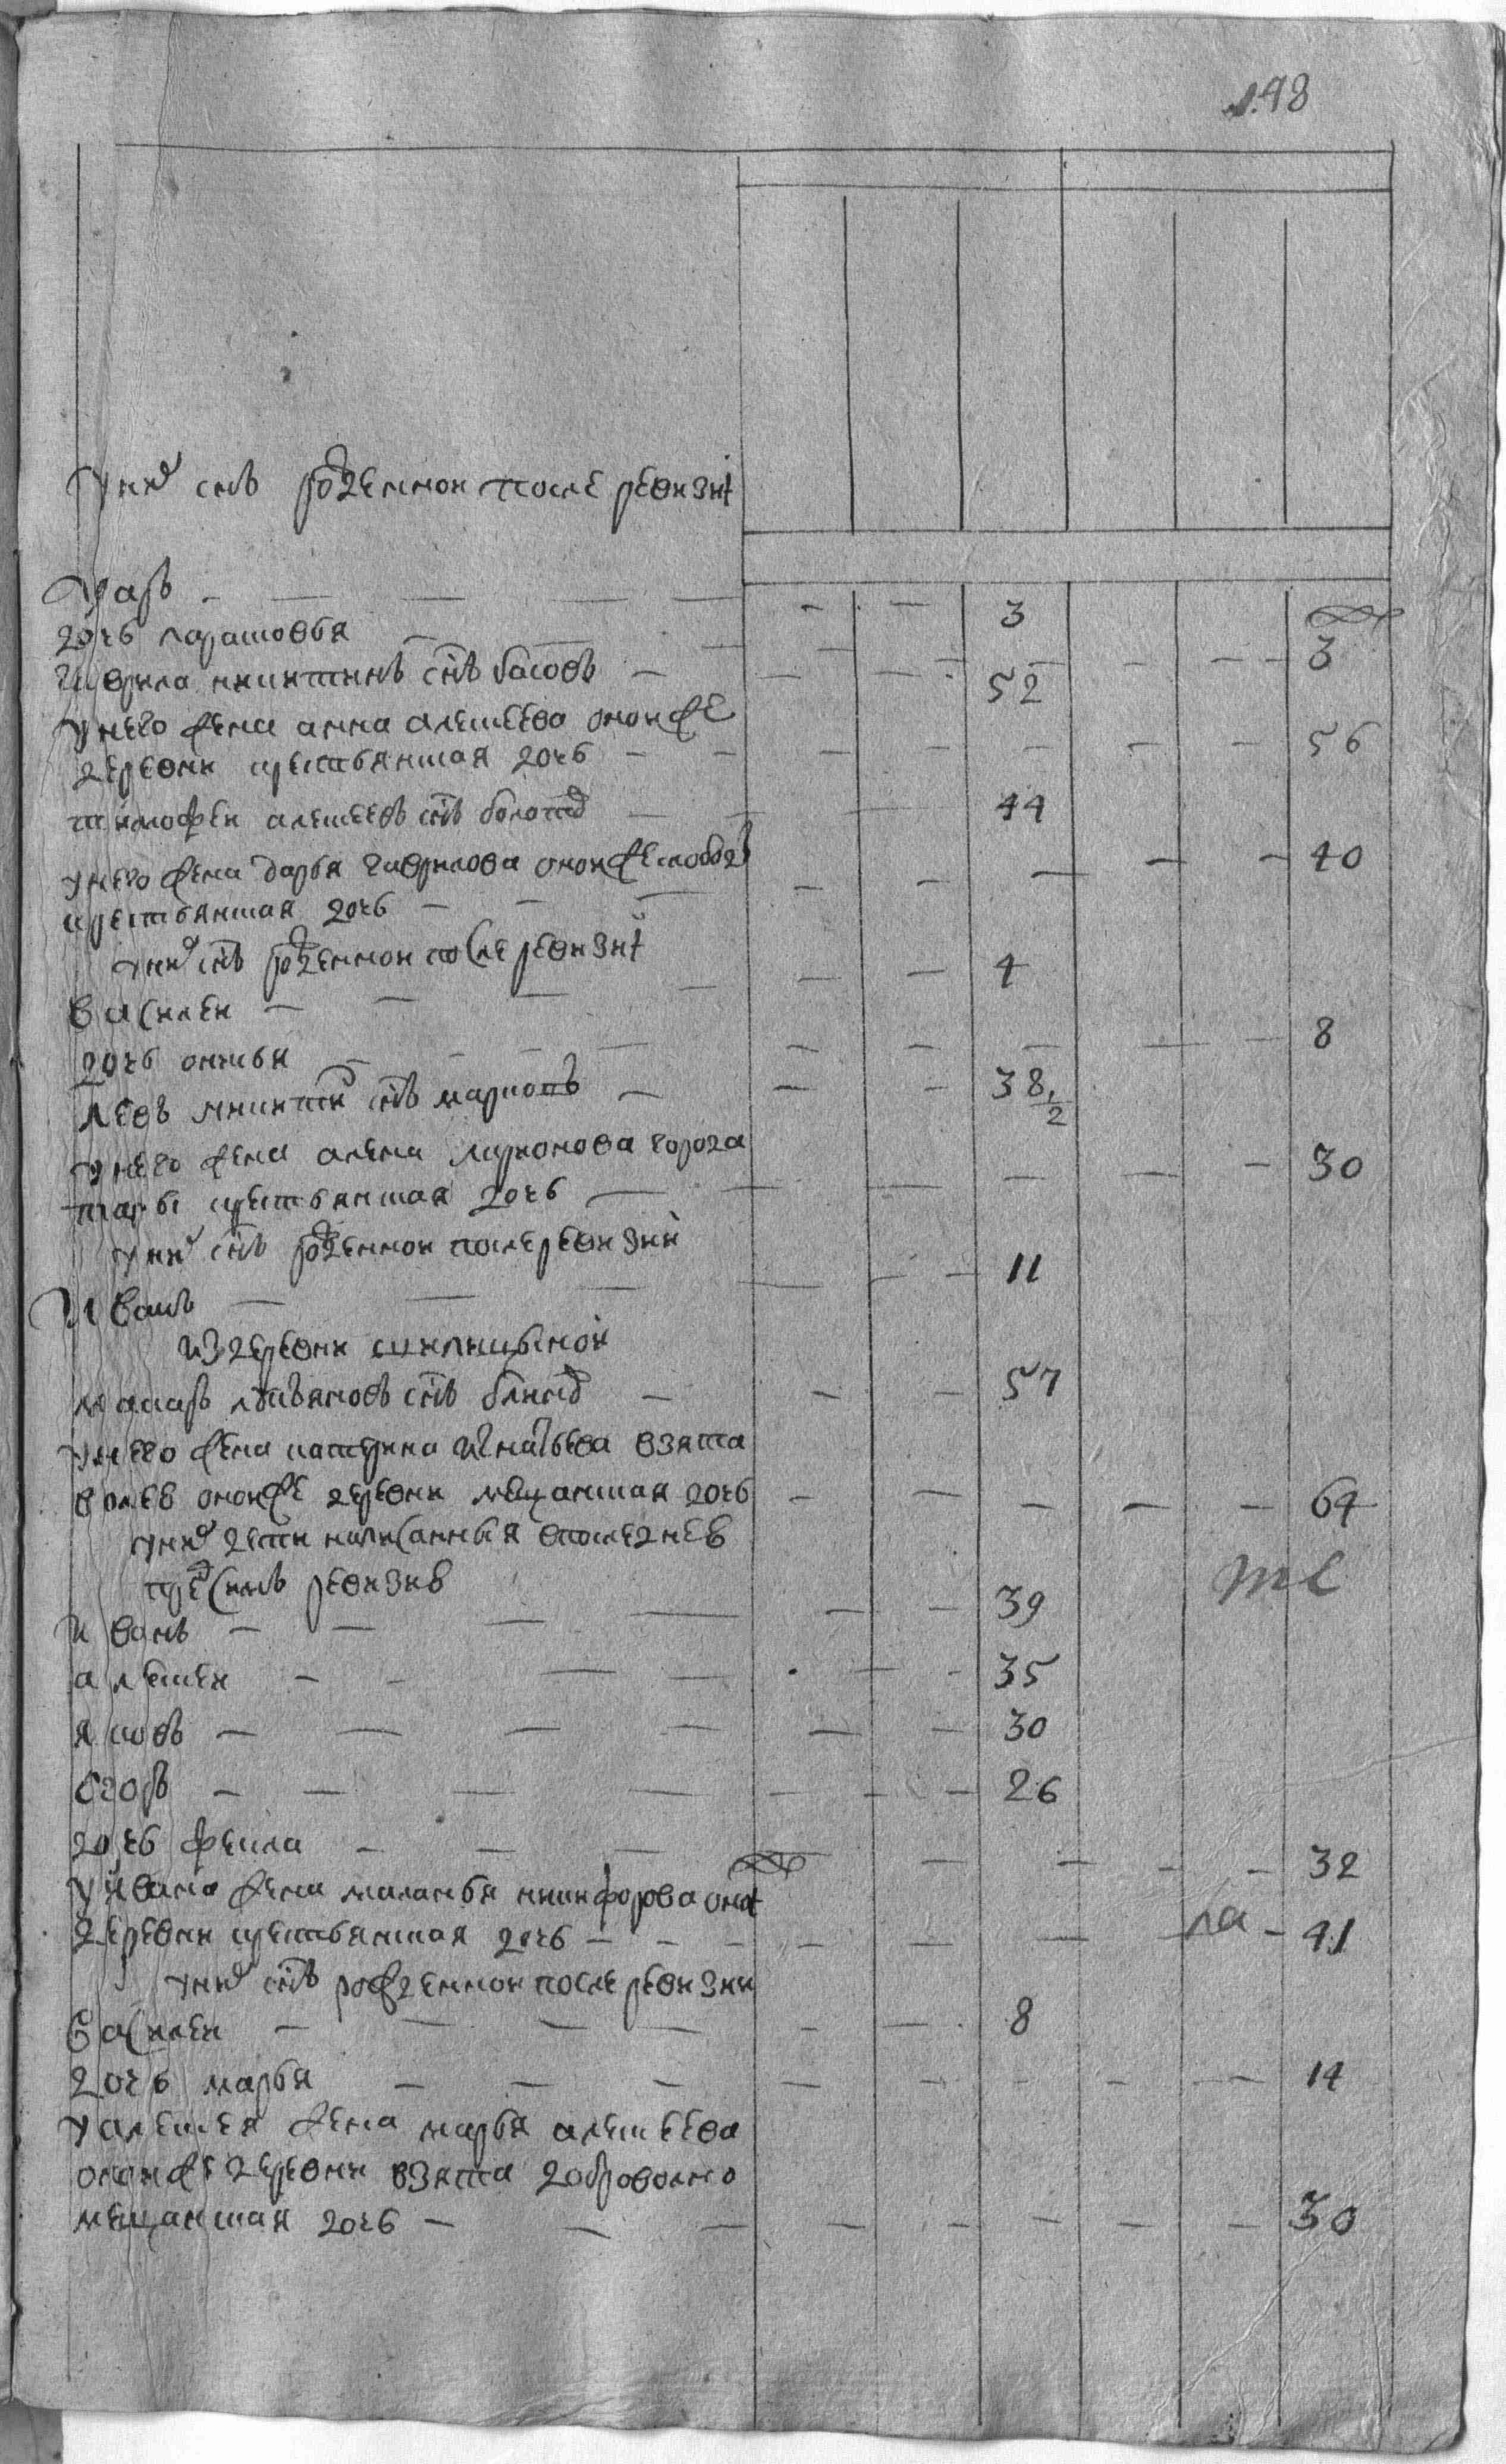 198
у них сынъ рожденной после ревизиі
Уаръ - - - - - - 3
дочь парасковья - - - - - - 3
гаврила никитинъ снъ басовъ - - - 52
у него жена анна алексеева оной же
деревни крестьянская дочь - - - - - - - 56
тимофеи алексеевъ снъ болотов - - - 44
у него жена дарья гаврилова оной же слободы
крестьянская дочь - - - - - - - 40
у них снъ рожденнои после ревизиі
василеи - - - - - - 4
дочь аксинья - - - - - - - 8
левъ никитин снъ марковъ - - - 38 1/2
у него жена алена ларионова города
тары крестьянская дочь - - - - - - 30
у них снъ рожденнои после ревизии
Иванъ - - - - - - 11
из деревни шипицыной
макаръ лукьяновъ снъ блинов - - - 57
у него жена катерина игнатьева взята
в оневоной же деревни мещанская дочь - - - - - 64
у них дети написанныя в последнев
пред симъ ревизив
Иванъ - - - - - - 39
алексеи - - - - - - 35
яковъ - - - - - - 30
Егоръ - - - - - - - 26
дочь фекла - - - - - - - 32
у ивана жена маланья никифорова оной
деревни крестьянская дочь - - - - - - - 41
у них снъ рожденнои после ревизии
Василеи - - - - - - 8
дочь марья - - - - - - - - 14
у алексея жена марья алексеева
оной же деревни взята добровольно
мещанская дочь - - - - - - - - 30